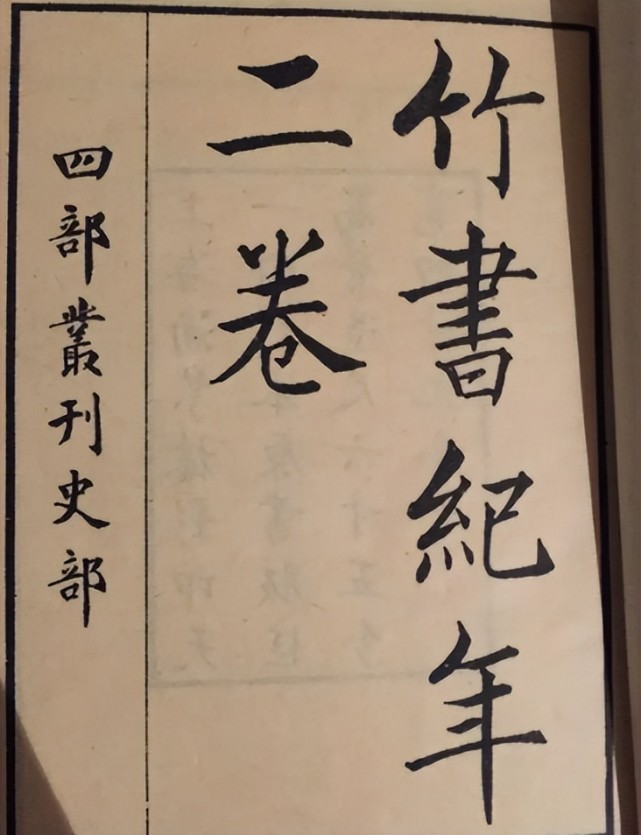 竹書紀年
二卷
四部叢刊史部